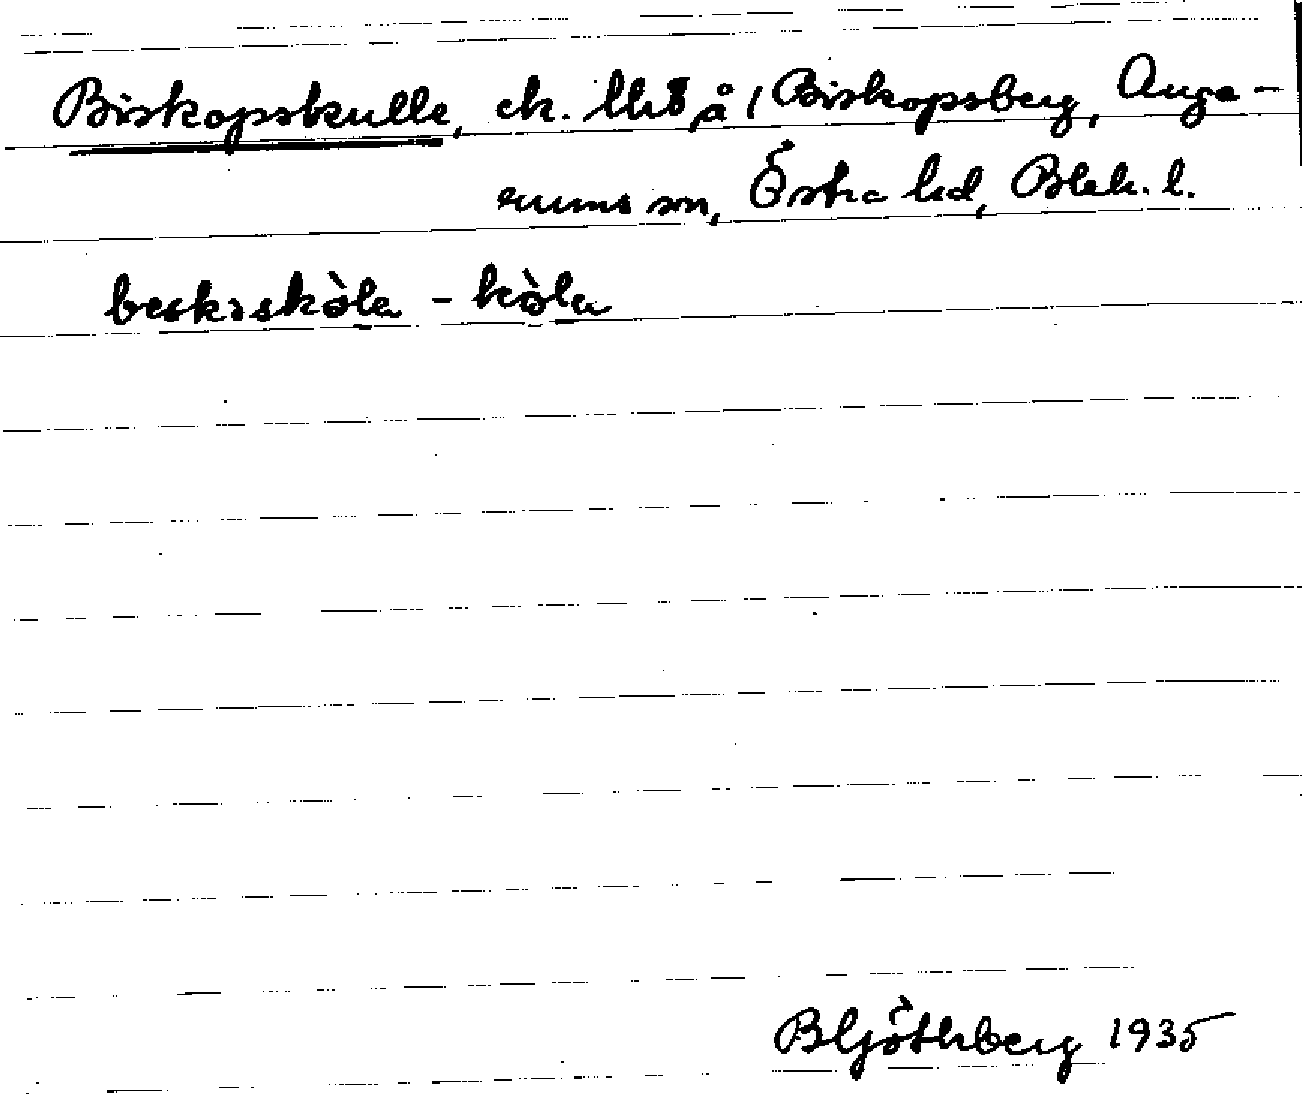 Biskopskulle, ck. å 1 Biskopsberg, Auge-
rums sn, Östra hd, Blek. l.
beskɔskòla - kòla
B Ljöthberg 1935